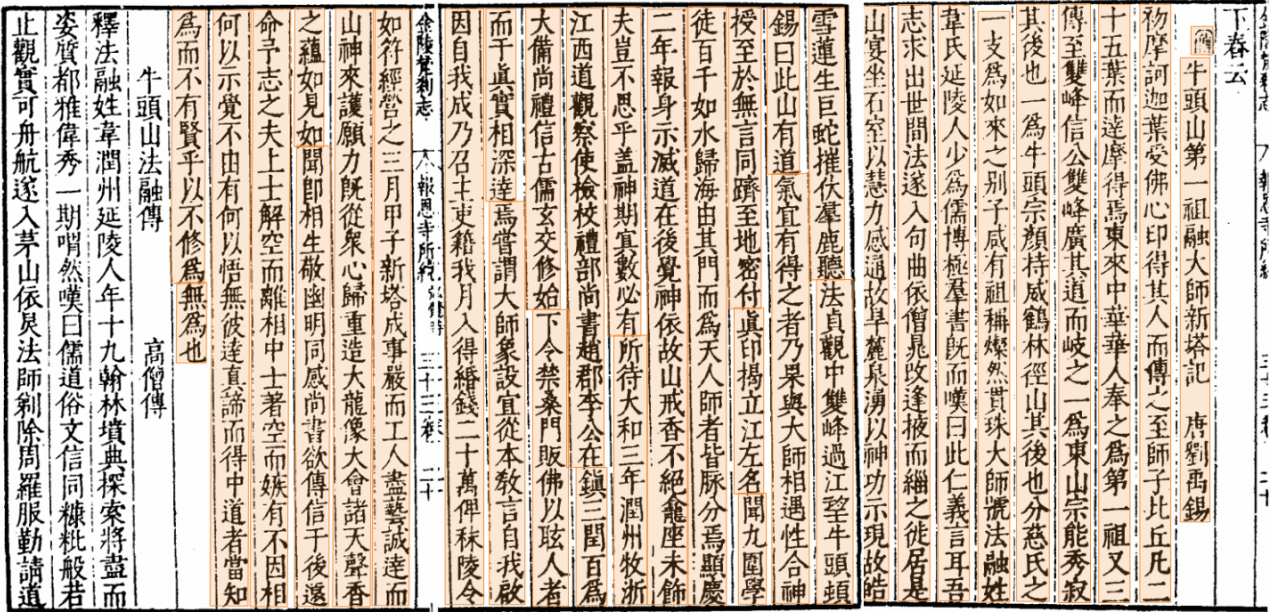 下春云
牛頭山第一祖融大師新塔記 唐劉禹錫
初摩訶迦葉受佛心印得其人而傳之至師子比丘凡二
十五葉而達摩得焉東來中華華人奉之為第一祖又三
傳至雙峰信公雙峰廣其道而岐之一為東山宗能秀寂
其後也一為牛頭宗顏持威鶴林徑山其後也分慈氏之
一支為如來之别子咸有祖稱燦然貫珠大師號法融姓
韋氏延陵人少為儒博極羣書旣而嘆曰此仁義言耳吾
志求出世間法遂入句曲依僧晃改逢掖而緇之徙居是
山宴坐石室以慧力感通故旱麓泉湧以神功示現故皓
雪蓮生巨蛇摧伏羣鹿聽法貞觀中雙峰過江望牛頭頓
錫曰此山有道氣宜有得之者乃果與大師相遇性合神
授至於無言同躋至地密付眞印揭立江左名聞九圍學
徒百千如水歸海由其門而為天人師者皆脉分焉顯慶
二年報身示滅道在後覺神依故山戒香不絕龕座未飾
夫豈不思乎盖神期冥數必有所待大和三年潤州牧浙
江西道觀察使檢校禮部尚書趙郡李公在鎭三閏百為
大備尚禮信古儒玄交修始下令禁桑門販佛以眩人者
而于眞實相深達焉嘗謂大師象設宜從本敎言自我啟
因自我成乃召主吏籍我月入得緡錢二十萬俾秣陵令
金陵梵刹志 八 報恩寺所統 三十三卷 二十
如符經營之三月甲子新塔成事嚴而工人盡藝誠達而
山神來護願力旣從衆心歸重造大龍像大會諸天聲香
之蘊如見如聞卽相生敬幽明同感尚書欲傳信于後遠
命予志之夫上士解空而離相中士著空而嫉有不因相
何以示覺不由有何以悟無彼達真諦而得中道者當知
為而不有賢乎以不修為無為也
牛頭山法融傳 高僧傳
釋法融姓韋潤州延陵人年十九翰林墳典探索將盡而
姿質都雅偉秀一期喟然嘆曰儒道俗文信同糠粃般若
止觀實可舟航遂入茅山依炅法師剃除周羅服勤請道